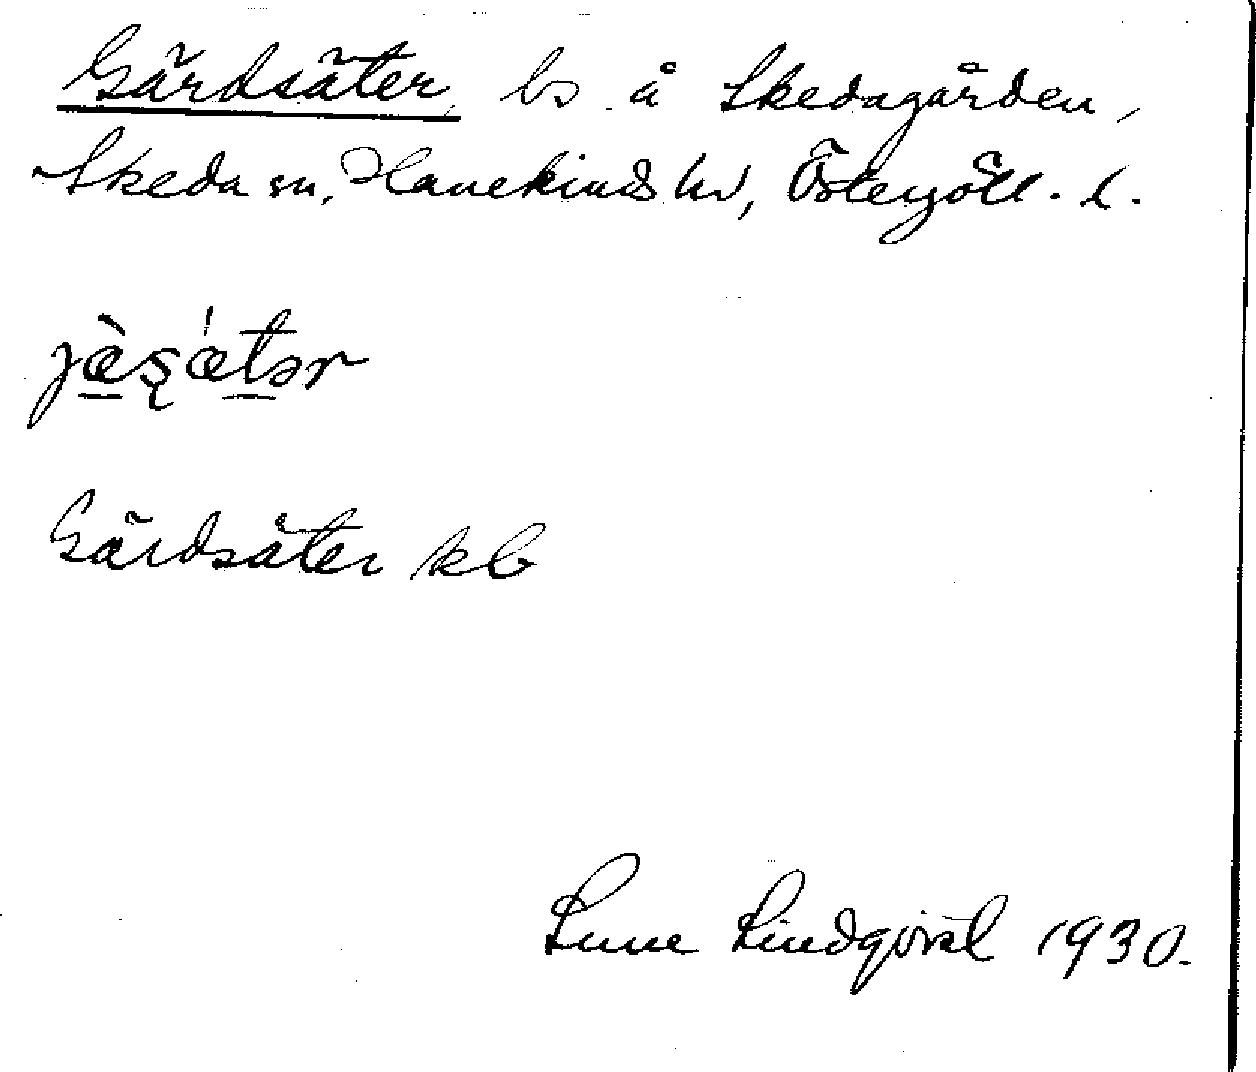 Gärdsäter, bs å Skedagården,
Skeda sn, Hanekinds hd, Östergötl. l.
jæ̀ʂǽtər
Gärdsäter kb
Sune Lindqvist 1930.